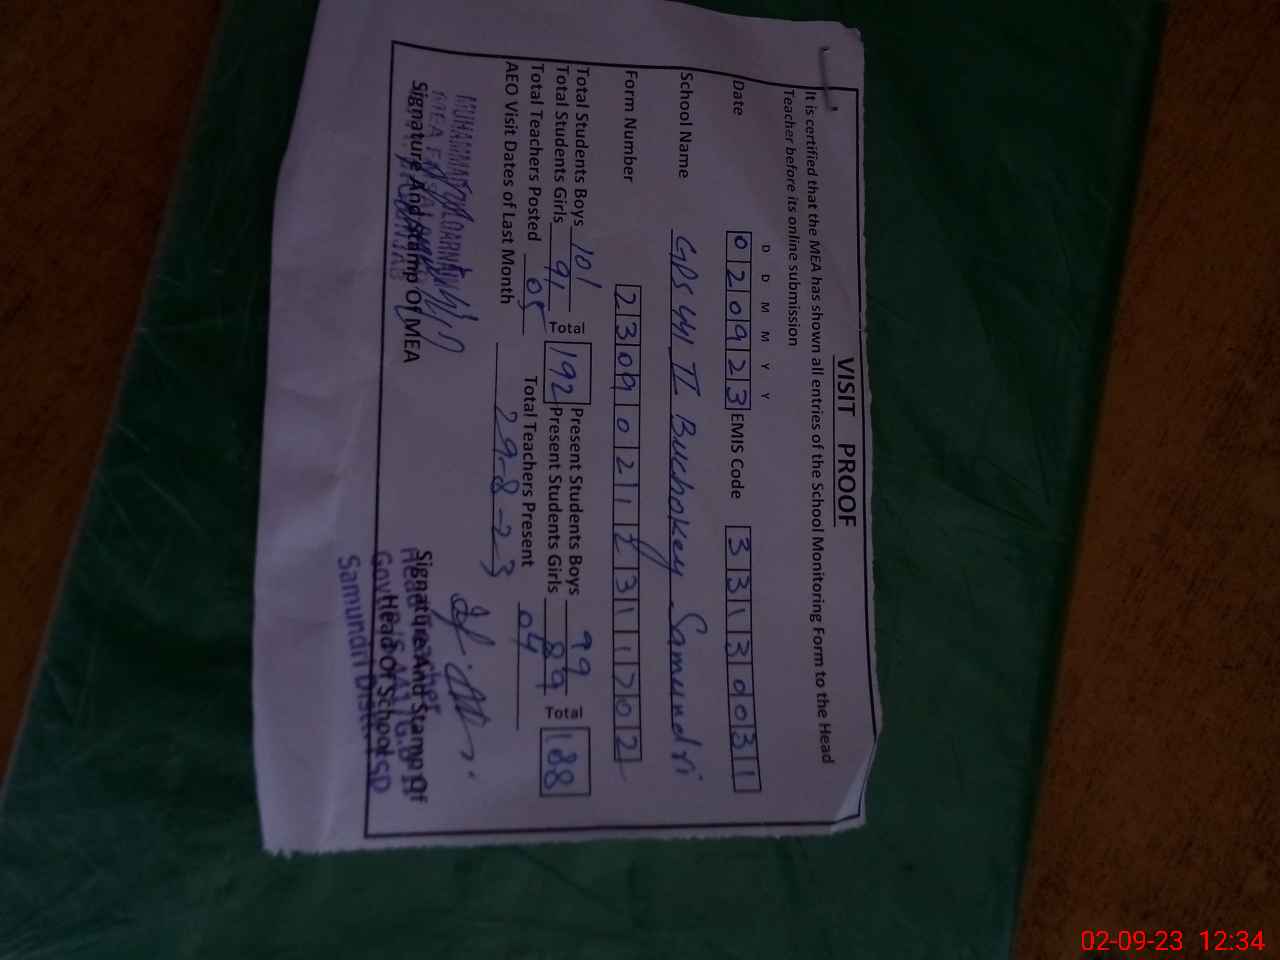 VISIT PROOF
It is certified that the MEA has shown all entries of the School Monitoring Form to the Head
Teacher before its online submission
D D M M Y Y
Date 020923 EMIS Code 33130031
School Name GPS 441 II Buchokey Samundri
Form Number
Total Students Boys 101 Present Students Boys 99
Total Students Girls 91 Total 192 Present Students Girls 89 Total 188
Total Teachers Posted 05 Total Teachers Present 04
AEO Visit Dates of Last Month 29-8-23
MUHAMMAD
MEA
Signature And Stamp Of MEA
Signature And Stamp Of
Head Of School
Head Teacher
Samundri Distt
02-09-23 12:34